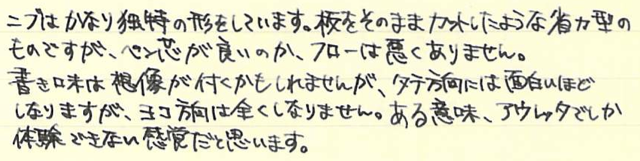 ニブはかなり独特の形をしています。板をそのままカットしたような省力型の
ものですが、ペン芯が良いのか、フローは悪くありません。
書き味は想像が付くかもしれませんが、タテ方向には面白いほど
しなりますが、ヨコ方向は全くしなりません。ある意味、アウレッタでしか
体験できない感覚だと思います。